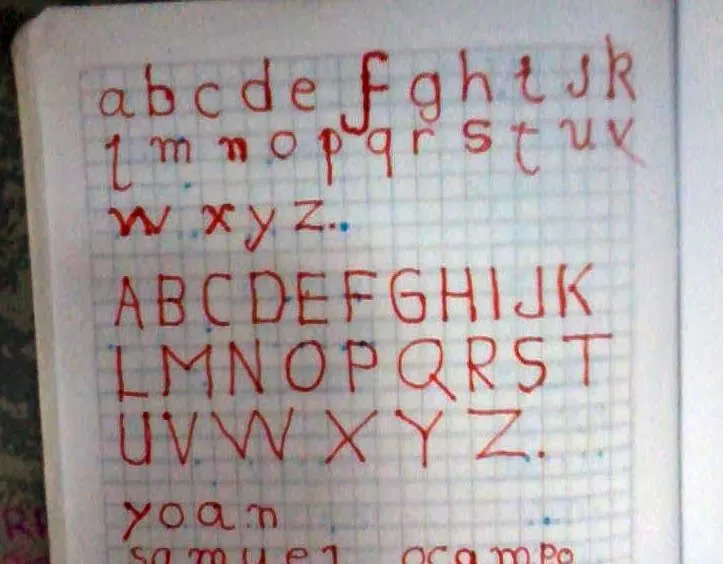 a b c d e f g h i J k
l m n o p q r s t u v
w x y z..
A B C D E F G H I J K
L M N O P Q R S T
U V W X Y Z.
yoan
samuel ocampo